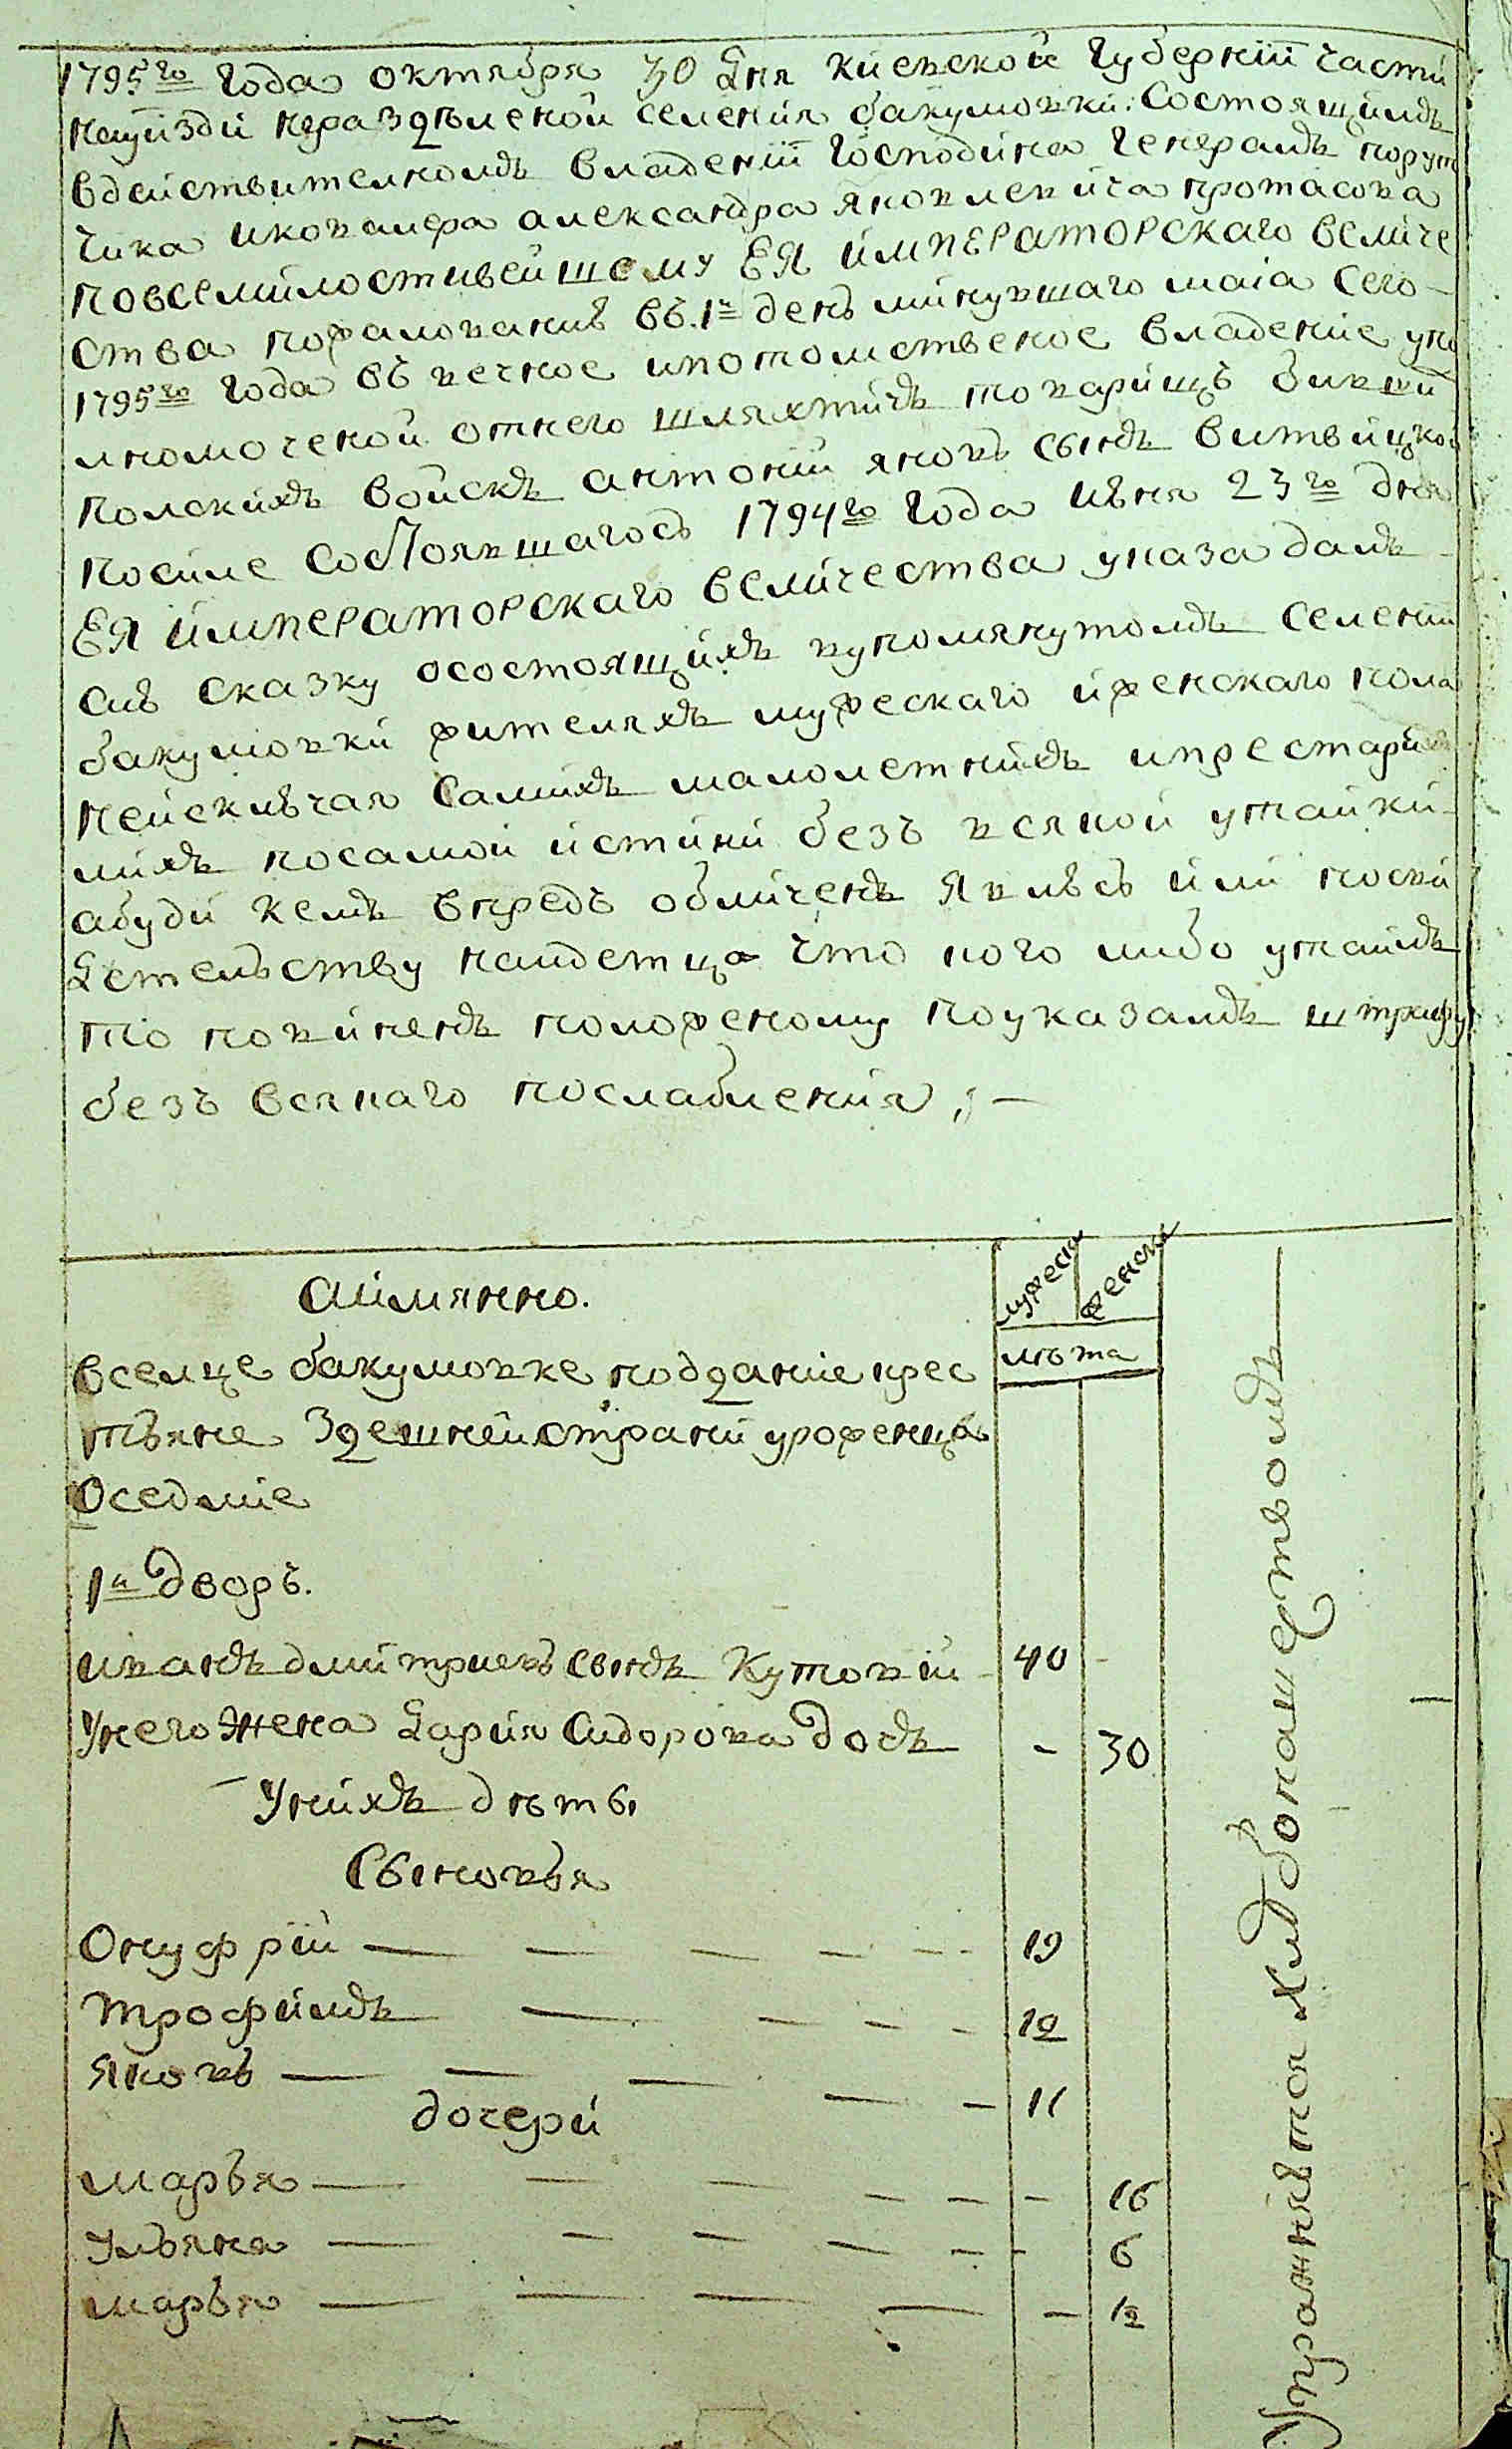 1795го года октября 30 дня киевской губернїи части
науїзди нераздѣленой селенїя бакумовки: Состоящимъ
вдействителномъ владенїи господина генералъ поруt
чика икавалера александра яковлевича протасова
повсемилостивейшему ЕЯ ИМПЕРАТОРСКАГО величе
ства пожалованию въ 1й день минувшаго маїа сего
1795го года въ вечное ипотомственое владенїе упо
лномоченой отнего шляхтичъ товарищъ бивши
полскихъ войскъ антонїй яковъ сынъ витвицкой
посиле состоявшагось 1794го года июня 23го дня
ЕЯ ИМПЕРАТОРСКАГО величества указа далъ
сию сказку осостоящихъ вупомянутомъ селенїи
бакумовки жителяхъ мужескаго иженскаго пола
неисключая самихъ малолетнихъ ипрестари
лихъ посамой истини безъ всякой утайки
абуди кемъ впредь обличенъ явлюсь или посви
детельству найдетца что кого либо утаилъ
то повиненъ положеному поуказамъ штрафу
безъ всякаго послабленїя, –
мужеска женска
аимянно.
лѣта
вселце бакумовке подданїе крес
тьяне здешней страни уроженцы
оседлїе
1й дворъ.
иванъ дмитриевъ сынъ Кутовїй 40 -
Унего жена дария сидорова дочь - 30
Унихъ дѣты
Сыновья
Онуфрїй 19
трофимъ 12
яковъ 11
дочери
марья 16
ульяна 6
марья 12
Упражнятся хлѣбопашетвомъ